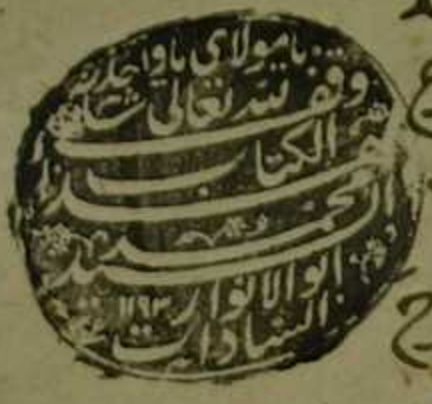 يا مولاي يا واحد
وقف لله تعالى
هذا الكتاب
السيد محمد
ابو الانوار
السادات